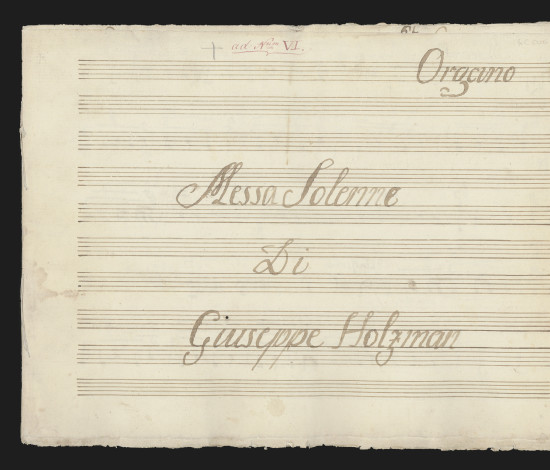 ad Nrum VI.
Organo
Messa Solenne
Di
Giuseppe Holzman